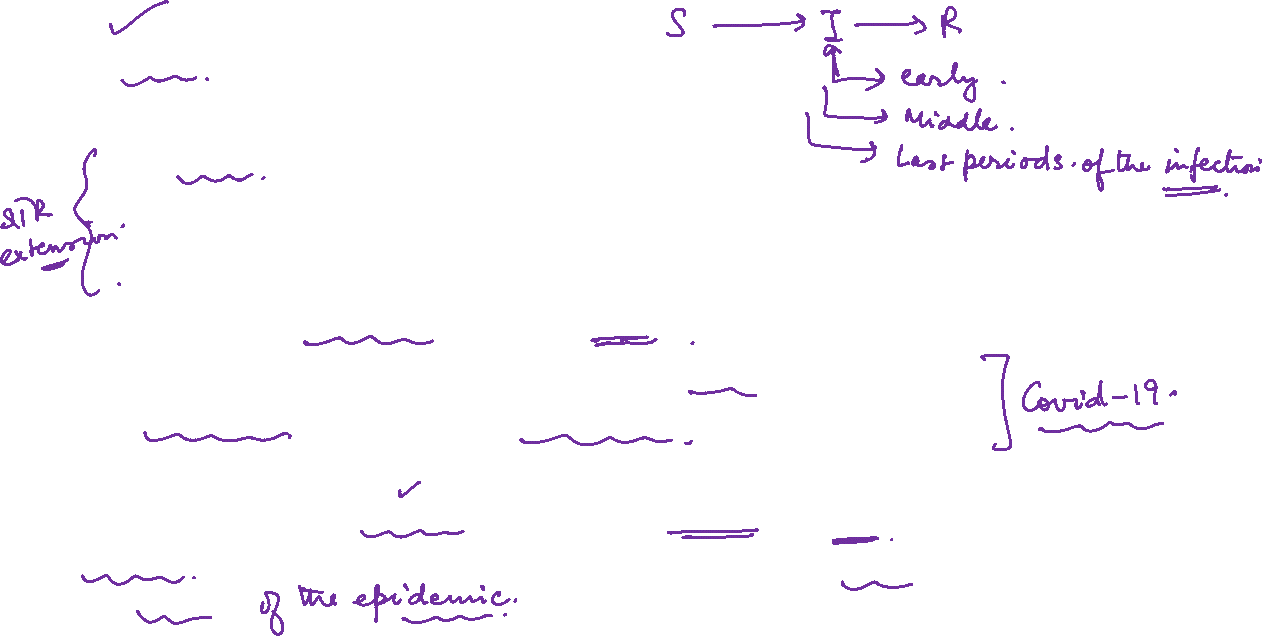 S → I → R
early.
Middle.
Last periods. of the infection.
SIR
extension.
Covid-19.
of the epidemic.